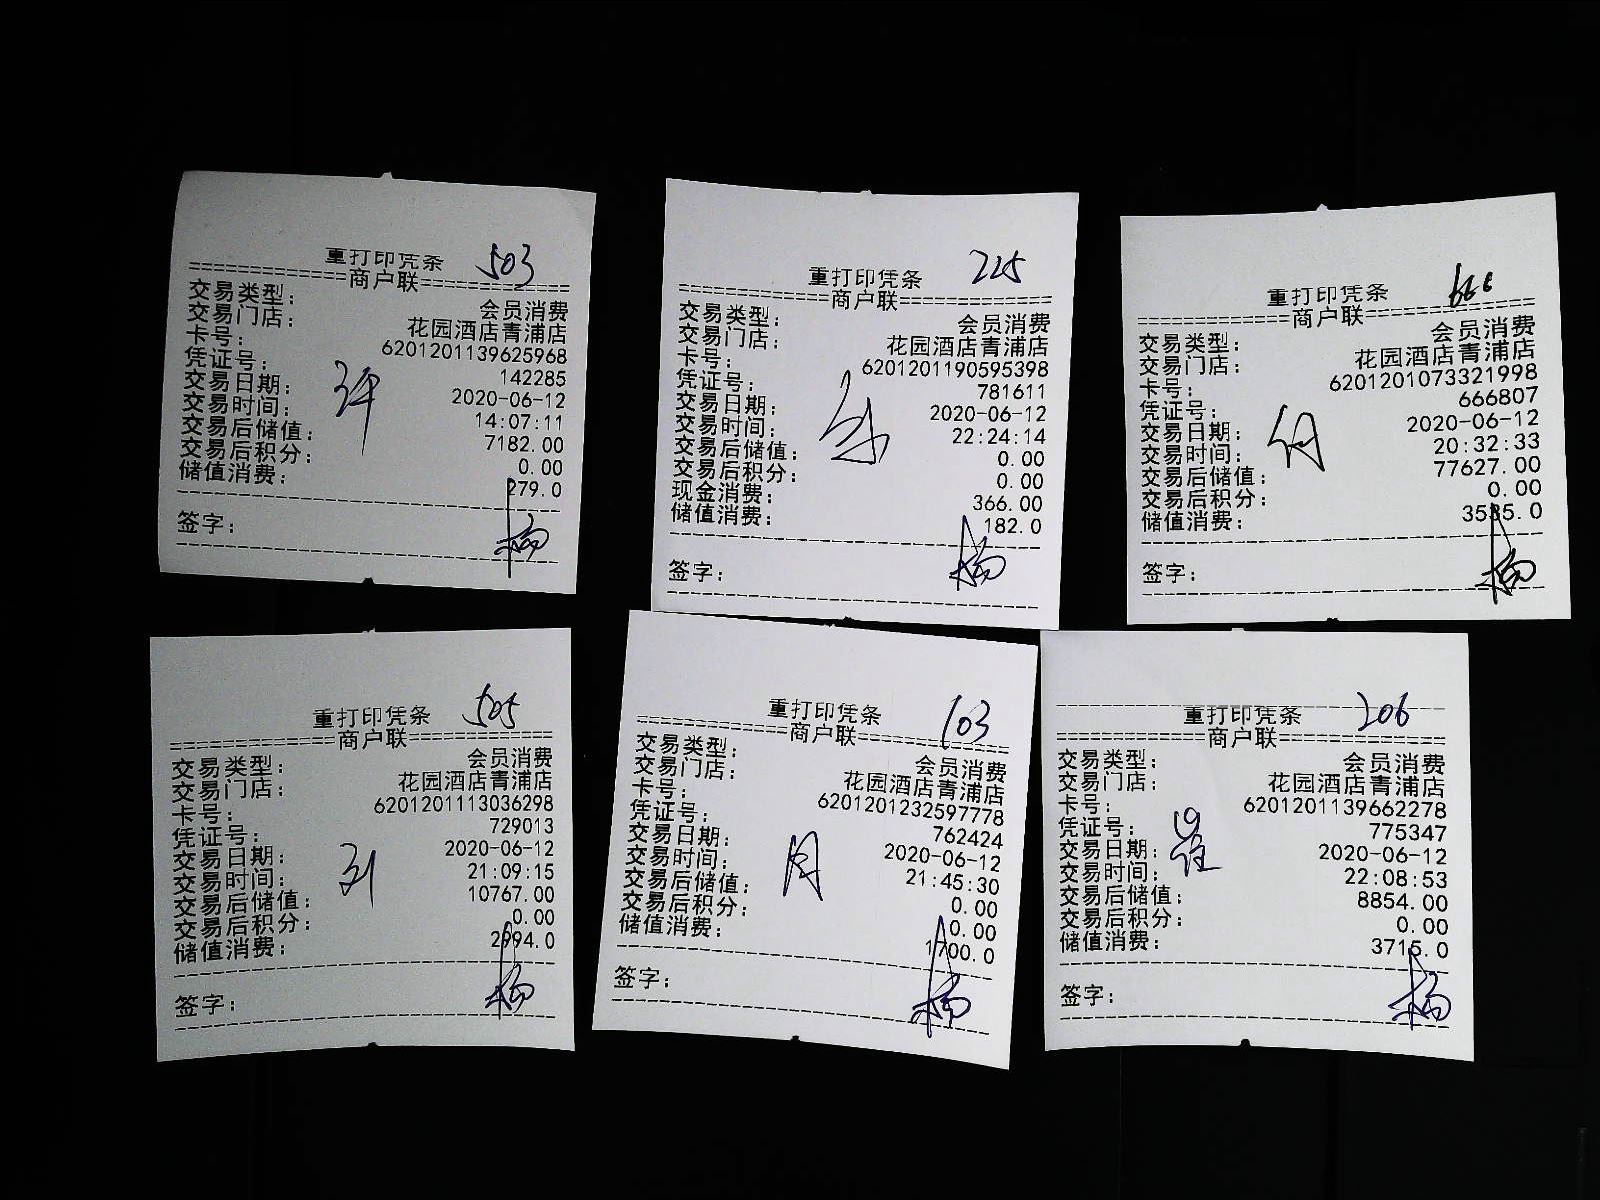 重打印凭条 503
商户联
交易类型： 会员消费
交易门店： 花园酒店青浦店
卡号： 6201201139625968
凭证号： 142285
交易日期： 2020-06-12
交易时间： 14:07:11
交易后储值： 7182.00
交易后积分： 0.00
储值消费： 279.0
签字：
重打印凭条 225
商户联
交易类型： 会员消费
交易门店： 花园酒店青浦店
卡号： 6201201190595398
凭证号： 781611
交易日期： 2020-06-12
交易时间： 22:24:14
交易后储值： 0.00
交易后积分： 0.00
现金消费： 366.00
储值消费： 182.0
签字：
重打印凭条 666
商户联
交易类型： 会员消费
交易门店： 花园酒店青浦店
卡号： 6201201073321998
凭证号： 666807
交易日期： 2020-06-12
交易时间： 20:32:33
交易后储值： 77627.00
交易后积分： 0.00
储值消费： 3585.0
签字：
重打印凭条 505
商户联
交易类型： 会员消费
交易门店： 花园酒店青浦店
卡号： 6201201113036298
凭证号： 729013
交易日期： 2020-06-12
交易时间： 21:09:15
交易后储值： 10767.00
交易后积分： 0.00
储值消费： 2994.0
签字：
重打印凭条 103
商户联
交易类型： 会员消费
交易门店： 花园酒店青浦店
卡号： 6201201232597778
凭证号： 762424
交易日期： 2020-06-12
交易时间： 21:45:30
交易后储值： 0.00
交易后积分： 0.00
储值消费： 1700.0
签字：
重打印凭条 206
商户联
交易类型： 会员消费
交易门店： 花园酒店青浦店
卡号： 6201201139662278
凭证号： 775347
交易日期： 2020-06-12
交易时间： 22:08:53
交易后储值： 8854.00
交易后积分： 0.00
储值消费： 3715.0
签字：